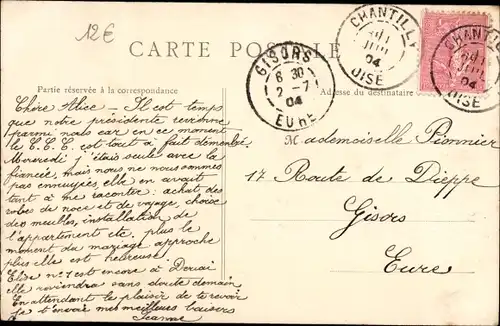 12€
CARTE POSTALE
Partie réservée à la correspondance
Adresse du destinataire
CHANTILLY
JUIL
04
OISE
CHANTILLY
JUIL
04
OISE
GISORS
6 30
2-7
04
EURE
Chère Alice - Il est temps
que notre présidente revienne
parmi nous car en ce moment
le C.C.C. est tout à fait démembré
Mercredi j'étais seule avec la
fiancée, mais nous ne nous sommes
pas ennuyées, elle en avait
tant à me raconter: achat des
robes de noce et de voyage, choix
des meubles, installation de
l'appartement etc. plus le
moment du mariage approche
plus elle est heureuse.
Elise n°1 est encore à Douai
elle reviendra sans doute demain
En attendant le plaisir de te revoir
je t'envoie mes meilleurs baisers
Jeanne
Mademoiselle Pionnier
17 Route de Dieppe
Gisors
Eure